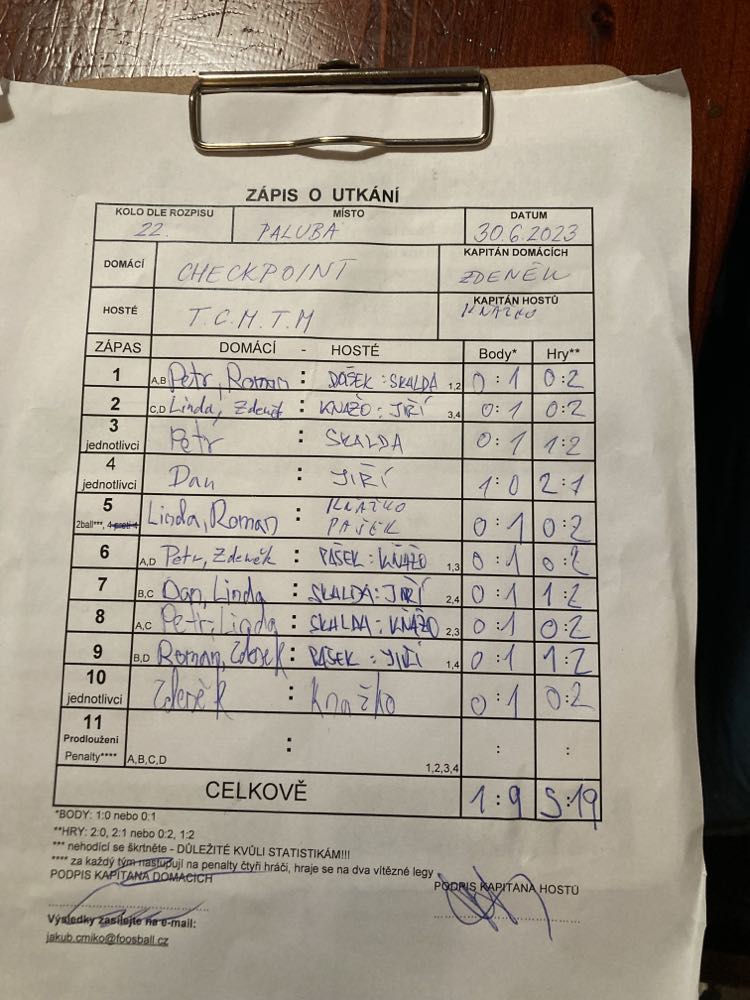 ZÁPIS O UTKÁNÍ
KOLO DLE ROZPISU MÍSTO DATUM
22. PALUBA 30.6.2023
DOMÁCÍ CHECKPOINT KAPITÁN DOMÁCÍCH
ZDENĚK
HOSTÉ T.C.M.T.M KAPITÁN HOSTŮ
KŇAŽKO
ZÁPAS DOMÁCÍ - HOSTÉ Body* Hry**
1 A,B Petr, Roman : PAŠEK : SKALDA 1,2 0:1 0:2
2 C,D Linda, Zdeněk : KŇAŽO : JIŘÍ 3,4 0:1 0:2
3 jednotlivci Petr : SKALDA 0:1 1:2
4 jednotlivci Dan : JIŘÍ 1:0 2:1
5 2ball***, 4 proti 4 Linda, Roman : KŇAŽKO PAŠEK 0:1 0:2
6 A,D Petr, Zdeněk : PAŠEK : KŇAŽO 1,3 0:1 0:2
7 B,C Dan, Linda : SKALDA : JIŘÍ 2,4 0:1 1:2
8 A,C Petr, Linda : SKALDA : KŇAŽO 2,3 0:1 0:2
9 B,D Roman, Zdeněk : PAŠEK : JIŘÍ 1,4 0:1 1:2
10 jednotlivci Zdeněk : Knažko 0:1 0:2
11 Prodloužení Penalty**** A,B,C,D : 1,2,3,4 : :
CELKOVĚ 1:9 5:19
*BODY: 1:0 nebo 0:1
**HRY: 2:0, 2:1 nebo 0:2, 1:2
*** nehodící se škrtněte - DŮLEŽITÉ KVŮLI STATISTIKÁM!!!
**** za každý tým nastupují na penalty čtyři hráči, hraje se na dva vítězné legy
PODPIS KAPITÁNA DOMÁCÍCH PODPIS KAPITÁNA HOSTŮ
Výsledky zasílejte na e-mail:
jakub.cmiko@foosball.cz